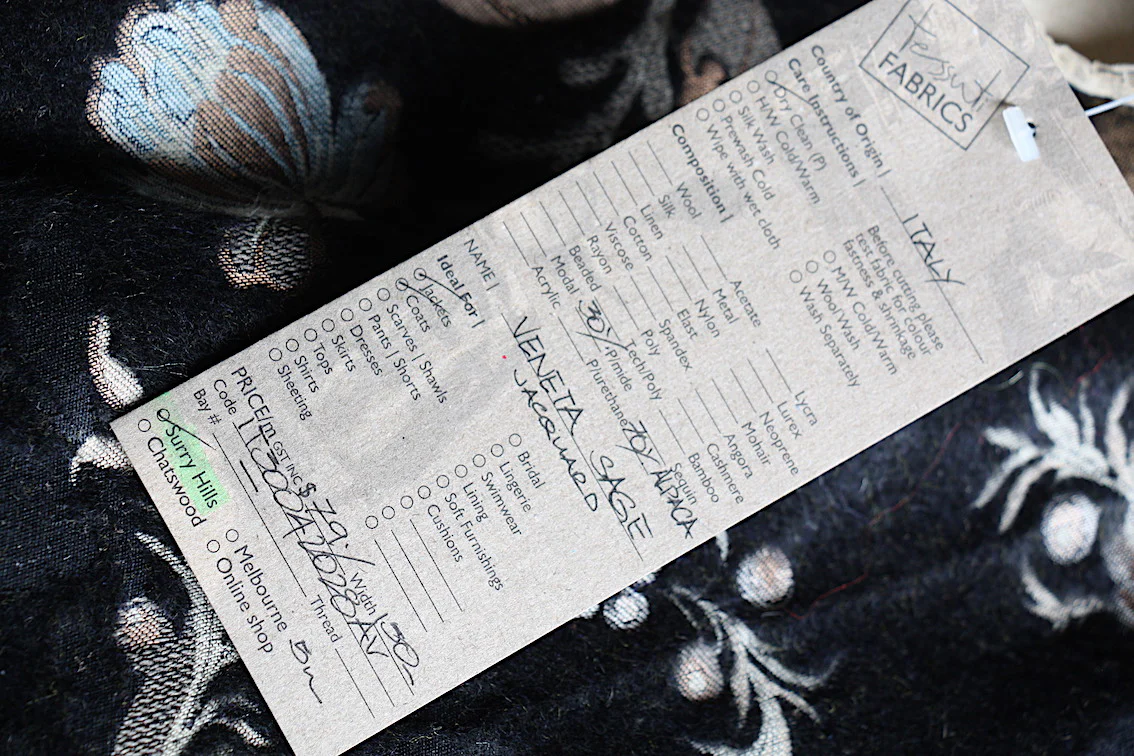 Tessuti
FABRICS
Country of Origin | ITALY
Care Instructions |
Dry Clean (P)
H/W Cold/Warm
Silk Wash
Prewash Cold
Wipe with wet cloth
Before cutting please
test fabric for colour
fastness & shrinkage
M/W Cold/Warm
Wool Wash
Wash Separately
Composition |
Wool
Silk
Linen
Cotton
Viscose
Rayon
Beaded
Modal
Acrylic
Acetate
Metal
Nylon
Elast
Spandex
Poly
Tech/Poly
30% P/mide
Plurethane
Lycra
Lurex
Neoprene
Mohair
Angora
Cashmere
Bamboo
Sequin
70% ALPACA
NAME | VENETA SAGE
JACQUARD
Ideal For |
Jackets
Coats
Scarves | Shawls
Pants | Shorts
Dresses
Skirts
Tops
Shirts
Sheeting
Bridal
Lingerie
Swimwear
Lining
Soft Furnishings
Cushions
PRICE/m GST INC $79./ Width 150
Code
Bay #
Thread
Surry Hills
Chatswood
Melbourne
Online shop